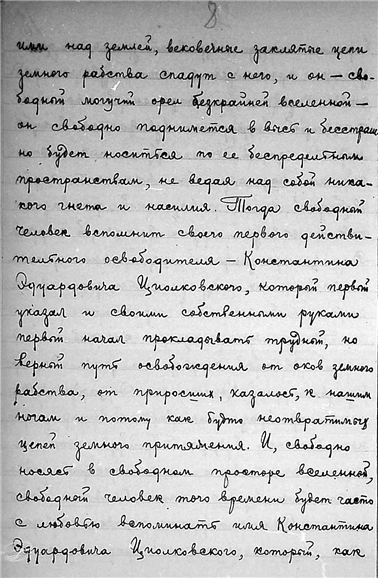 8
ими над землей, вековечные заклятые цепи
земного рабства спадут с него, и он – сво-
бодный могучий орел безкрайней вселенной –
он свободно поднимется в высь и бесстраш
но будет носиться по ее беспредельным
пространствам, не ведая над собой ника-
кого гнета и насилия. Тогда свободный
человек вспомнит своего первого действи-
тельного освободителя – Константина
Эдуардовича Циолковского, которой первый
указал и своими собственными руками
первый начал прокладывать трудный, но
верный путь освобождения от оков земного
рабства, от приросших, казалось, к нашим
ногам и потому как будто неотвратимых
цепей земного притяжения. И, свободно
носясь в свободном просторе вселенной,
свободный человек того времени будет часто
с любовью вспоминать имя Константина
Эдуардовича Циолковского, который, как